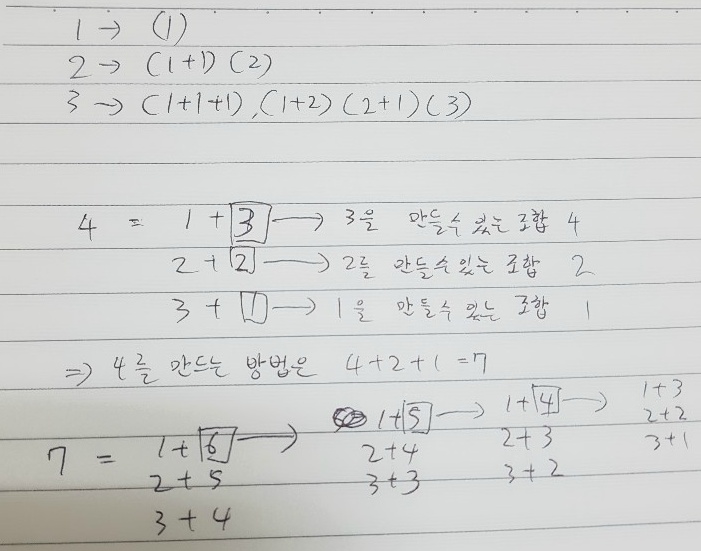 1 → (1)
2 → (1+1) (2)
3 → (1+1+1), (1+2) (2+1) (3)
4 = 1 + 3 → 3을 만들수 있는 조합 4
2 + 2 → 2를 만들수있는 조합 2
3 + 1 → 1을 만들수 있는 조합 1
⇒ 4를 만드는 방법은 4+2+1=7
7 = 1+6 → 1+5 → 1+4 → 1+3
2+5 2+4 2+3 2+2
3+4 3+3 3+2 3+1